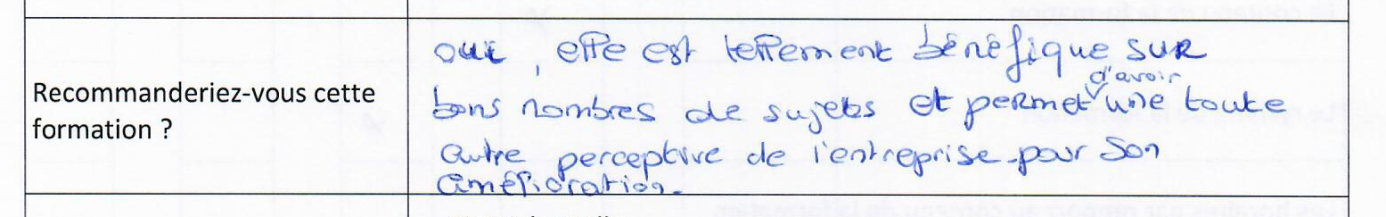 Recommanderiez-vous cette
formation ?
oui, elle est tellement bénéfique sur
bons nombres de sujets et permet d'avoir une toute
autre perceptive de l'entreprise pour son
amélioration.